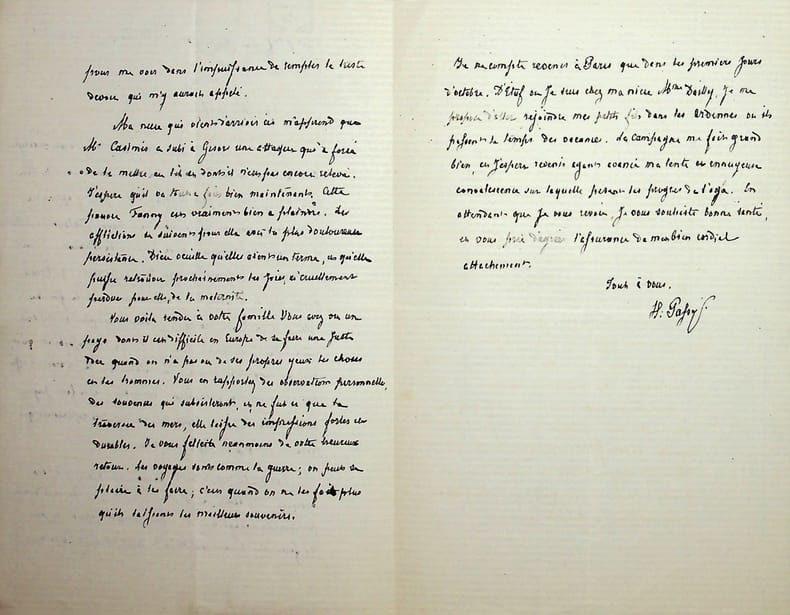 pour me voir dans l'impuissance de remplir le triste
devoir qui m'y aurait appelé.
Ma nièce qui vient d'arriver ici m'apprend que
Mr Casimir a subi à Gisors une attaque qui a forcé
de le mettre au lit dont il n'est pas encore relevé.
J'espère qu'il va bien maintenant. Cette
pauvre Fanny est vraiment bien à plaindre. Les
afflictions se suivent pour elle avec la plus douloureuse
persistance. Dieu veuille qu'elles aient un terme, et qu'elle
puisse retrouver prochainement les joies, si cruellement
perdues pour elle, de la maternité.
Vous voilà rendu à votre famille. Vous avez vu un
pays dont il est difficile en Europe de se faire une juste
idée quand on n'a pas vu de ses propres yeux les choses
et les hommes. Vous en rapportez des observations personnelles,
des souvenirs qui subsisteront, et ne fut ce que la
traversée des mers, elle laisse des impressions fortes et
durables. Je vous félicite néanmoins de votre heureux
retour. Les voyages sont comme la guerre; on peut se
plaire à les faire; c'est quand on ne les fait plus
qu'ils laissent les meilleurs souvenirs.
Je ne compte revenir à Paris que dans les premiers jours
d'octobre. D' où je suis chez ma nièce Mme Dailly, je me
propose d'aller rejoindre mes petits fils dans les Ardennes où ils
passent le temps des vacances. La campagne me fait grand
bien, et j'espère revenir ayant avancé ma lente et ennuyeuse
convalescence sur laquelle pèsent les progrès de l'age. En
attendant que je vous revoie, je vous souhaite bonne santé,
et vous prie d'agréer l'assurance de mon bien cordial
attachement.
Tout à vous.
H. Passy